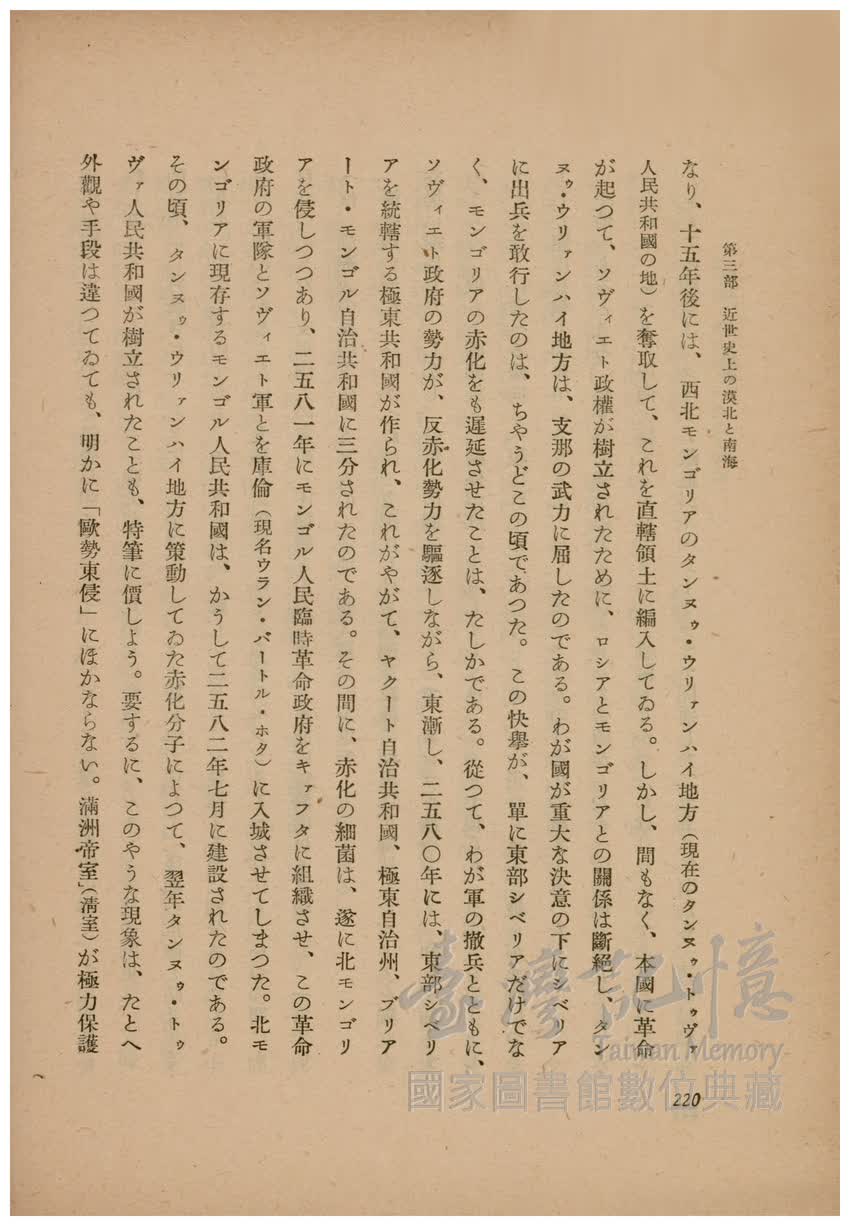 第三部　近世史上の漠北と南海
なり、十五年後には、西北モンゴリアのタンヌゥ・ウリァンハイ地方（現在のタンヌゥ・トゥヴァ
人民共和國の地）を奪取して、これを直轄領土に編入してゐる。しかし、間もなく、本國に革命
が起つて、ソヴィエト政權が樹立されたために、ロシアとモンゴリアとの關係は斷絶し、タン
ヌゥ・ウリァンハイ地方は、支那の武力に屈したのである。わが國が重大な決意の下にシベリア
に出兵を敢行したのは、ちやうどこの頃であつた。この快擧が、單に東部シベリアだけでな
く、モンゴリアの赤化をも遲延させたことは、たしかである。從つて、わが軍の撤兵とともに、
ソヴィエト政府の勢力が、反赤化勢力を驅逐しながら、東漸し、二五八〇年には、東部シベリ
アを統轄する極東共和國が作られ、これがやがて、ヤクート自治共和國、極東自治州、ブリア
ート・モンゴル自治共和國に三分されたのである。その間に、赤化の細菌は、遂に北モンゴリ
アを侵しつつあり、二五八一年にモンゴル人民臨時革命政府をキァフタに組織させ、この革命
政府の軍隊とソヴィエト軍とを庫倫（現名ウラン・バートル・ホタ）に入城させてしまつた。北モ
ンゴリアに現存するモンゴル人民共和國は、かうして二五八二年七月に建設されたのである。
その頃、タンヌゥ・ウリァンハイ地方に策動してゐた赤化分子によつて、翌年タンヌゥ・トゥ
ヴァ人民共和國が樹立されたことも、特筆に價しよう。要するに、このやうな現象は、たとへ
外觀や手段は違つてゐても、明かに「歐勢東侵」にほかならない。滿洲帝室」（淸室）が極力保護
220
臺灣記憶
Taiwan Memory
國家圖書館數位典藏